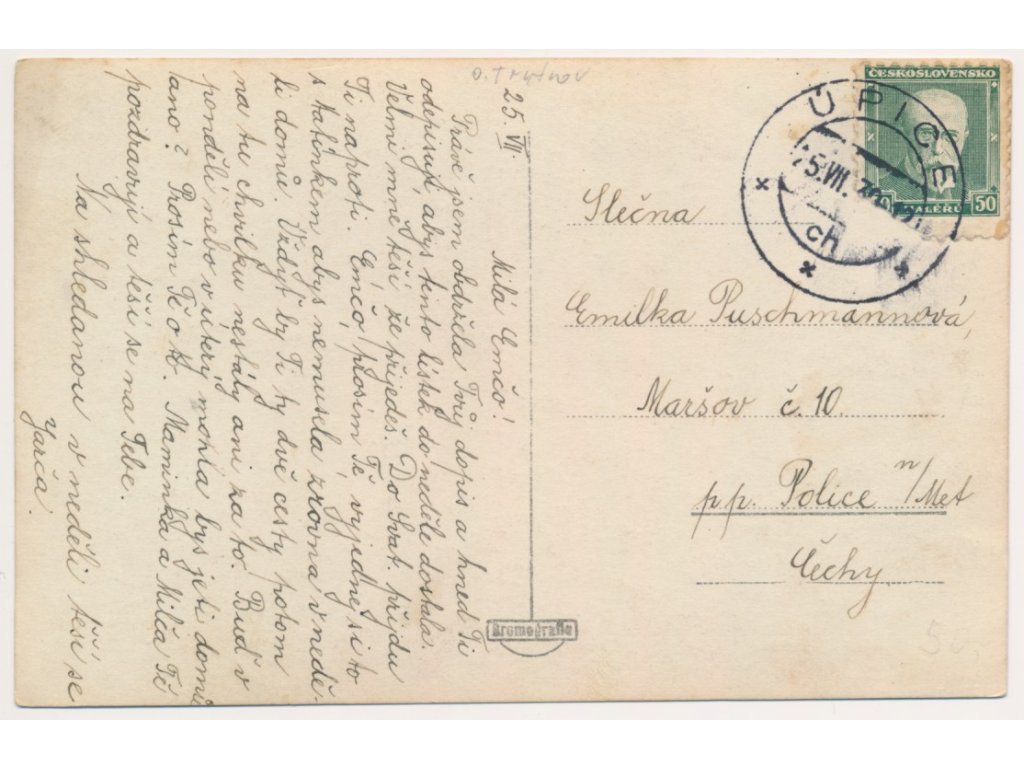 o. Trutnov
25. VII.
Milá Emčo!
Právě jsem obdržela Tvůj dopis a hned Ti
odepisuji, abys tento lístek do neděle dostala.
Velmi mne těší, že přijedeš. Do Svat. přijdu
Ti naproti. Emčo, prosím Tě vyjednej si to
s tatínkem abys nemusela zrovna v nedě-
li domů. Vždyť by Ti ty dvě cesty potom
na tu chvilku nestály ani za to. Buď v
pondělí nebo v úterý mohla bys jeti domů
ano? Prosím Tě o to. Maminka a Milča Tě
pozdravují a těší se na Tebe.
Na shledanou v neděli těší se
Jarča.
Bromografia
ČESKOSLOVENSKO
50 HALÉŘŮ 50
ÚPICE
25.VII.
ch
Slečna
Emilka Puschmannová,
Maršov č. 10.
p.p. Police n/Met
Čechy.